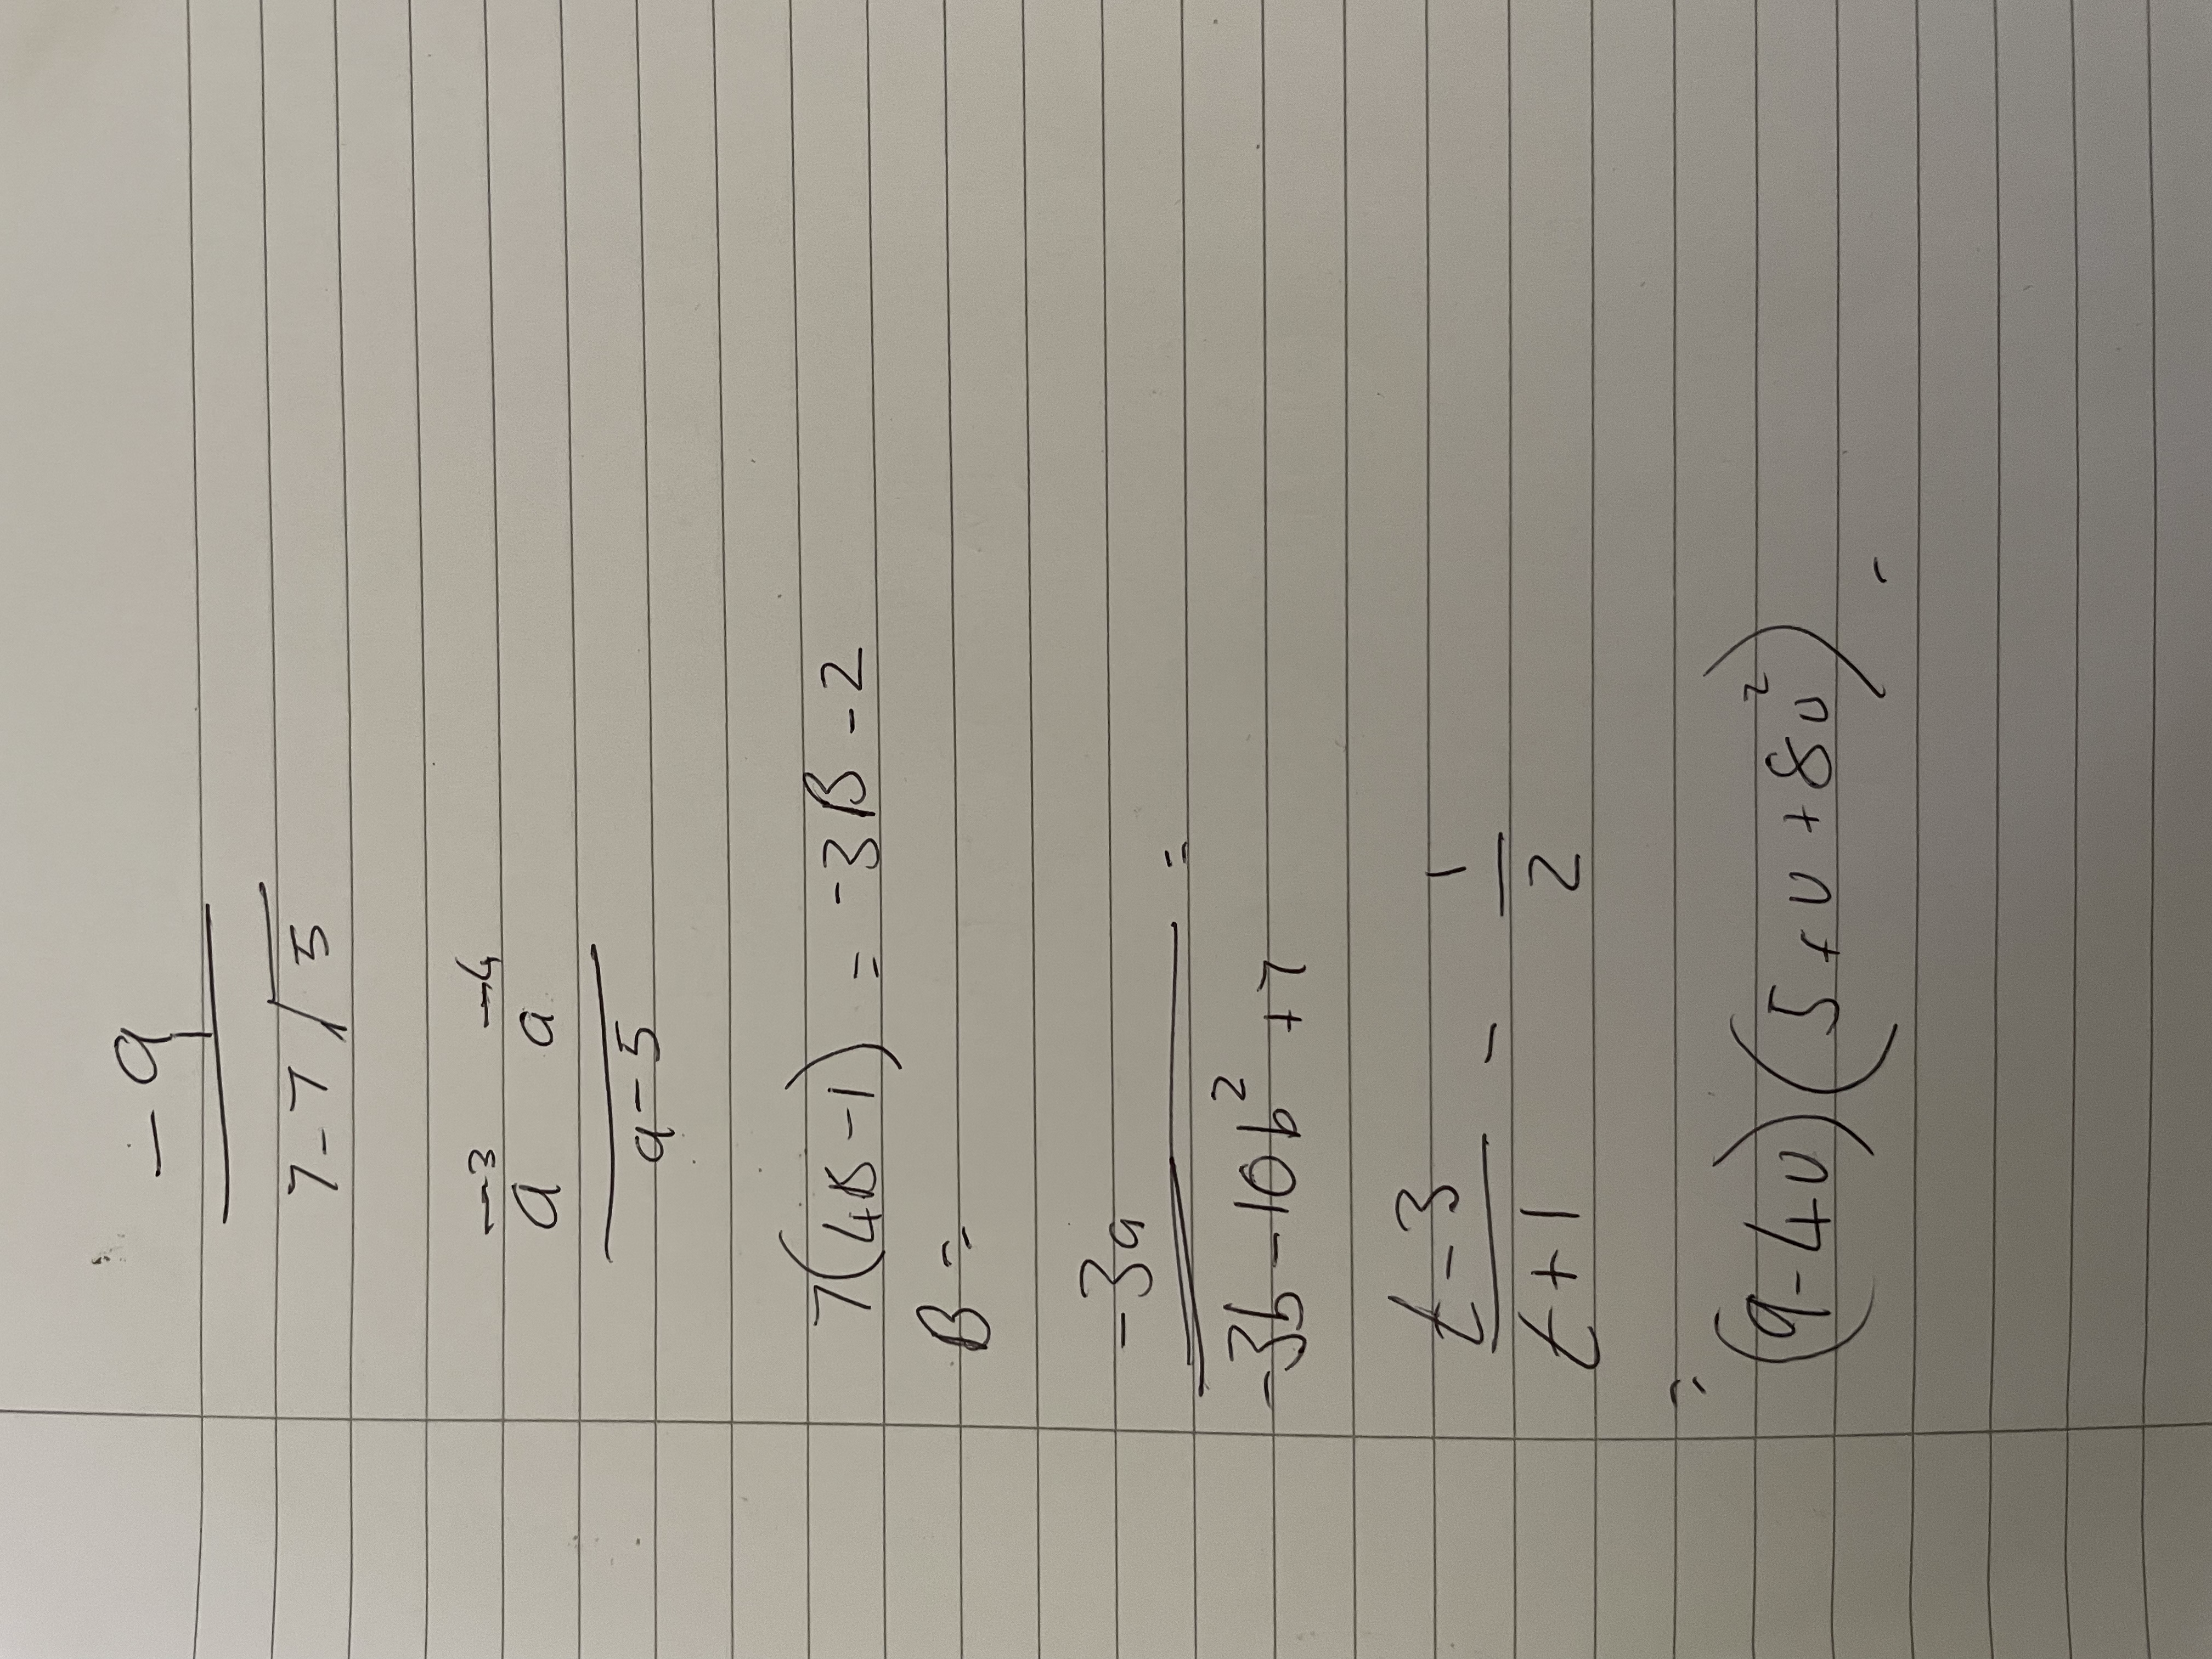 -9
7-7√5
a⁻³ a⁻⁴
a-5
7(4β-1) = -3β-2
β=
-3a =
-3b-10b²+7
t-3 - 1
t+1 2
= (9-4υ)(5+υ+8υ²).